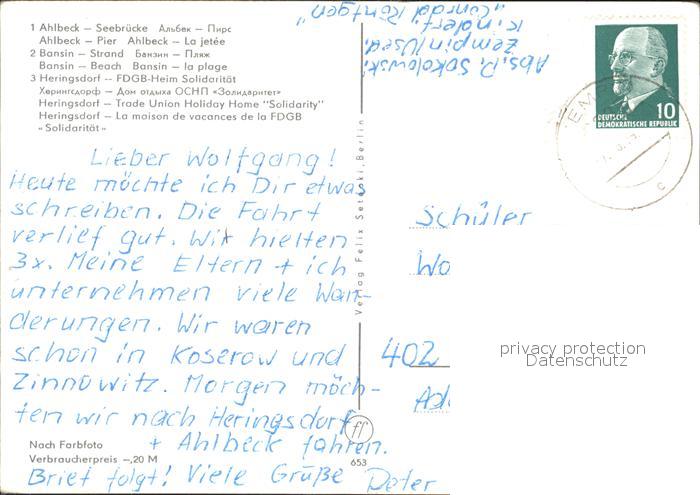 1 Ahlbeck – Seebrücke Альбек – Пирс
Ahlbeck – Pier Ahlbeck – La jetée
2 Bansin – Strand Банзин – Пляж
Bansin – Beach Bansin – la plage
3 Heringsdorf – FDGB-Heim Solidarität
Херингсдорф – Дом отдыха ОСНП «Золидаритет»
Heringsdorf – Trade Union Holiday Home "Solidarity"
Heringsdorf – La maison de vacances de la FDGB
«Solidarität»
Abs. P. Sokolowski
Zempin/Used.
Kinderf.
"Conrad Röntgen"
DEUTSCHE
DEMOKRATISCHE REPUBLIK
10
Lieber Wolfgang!
Heute möchte ich Dir etwas
schreiben. Die Fahrt
verlief gut. Wir hielten
3x. Meine Eltern + ich
unternehmen viele Wan-
derungen. Wir waren
schon in Koserow und
Zinnowitz. Morgen möch-
ten wir nach Heringsdorf
+ Ahlbeck fahren.
Brief folgt! Viele Grüße Peter
Verlag Felix Setecki, Berlin
Schüler
Wo
402
privacy protection
Datenschutz
Nach Farbfoto
Verbraucherpreis –,20 M
ff
653